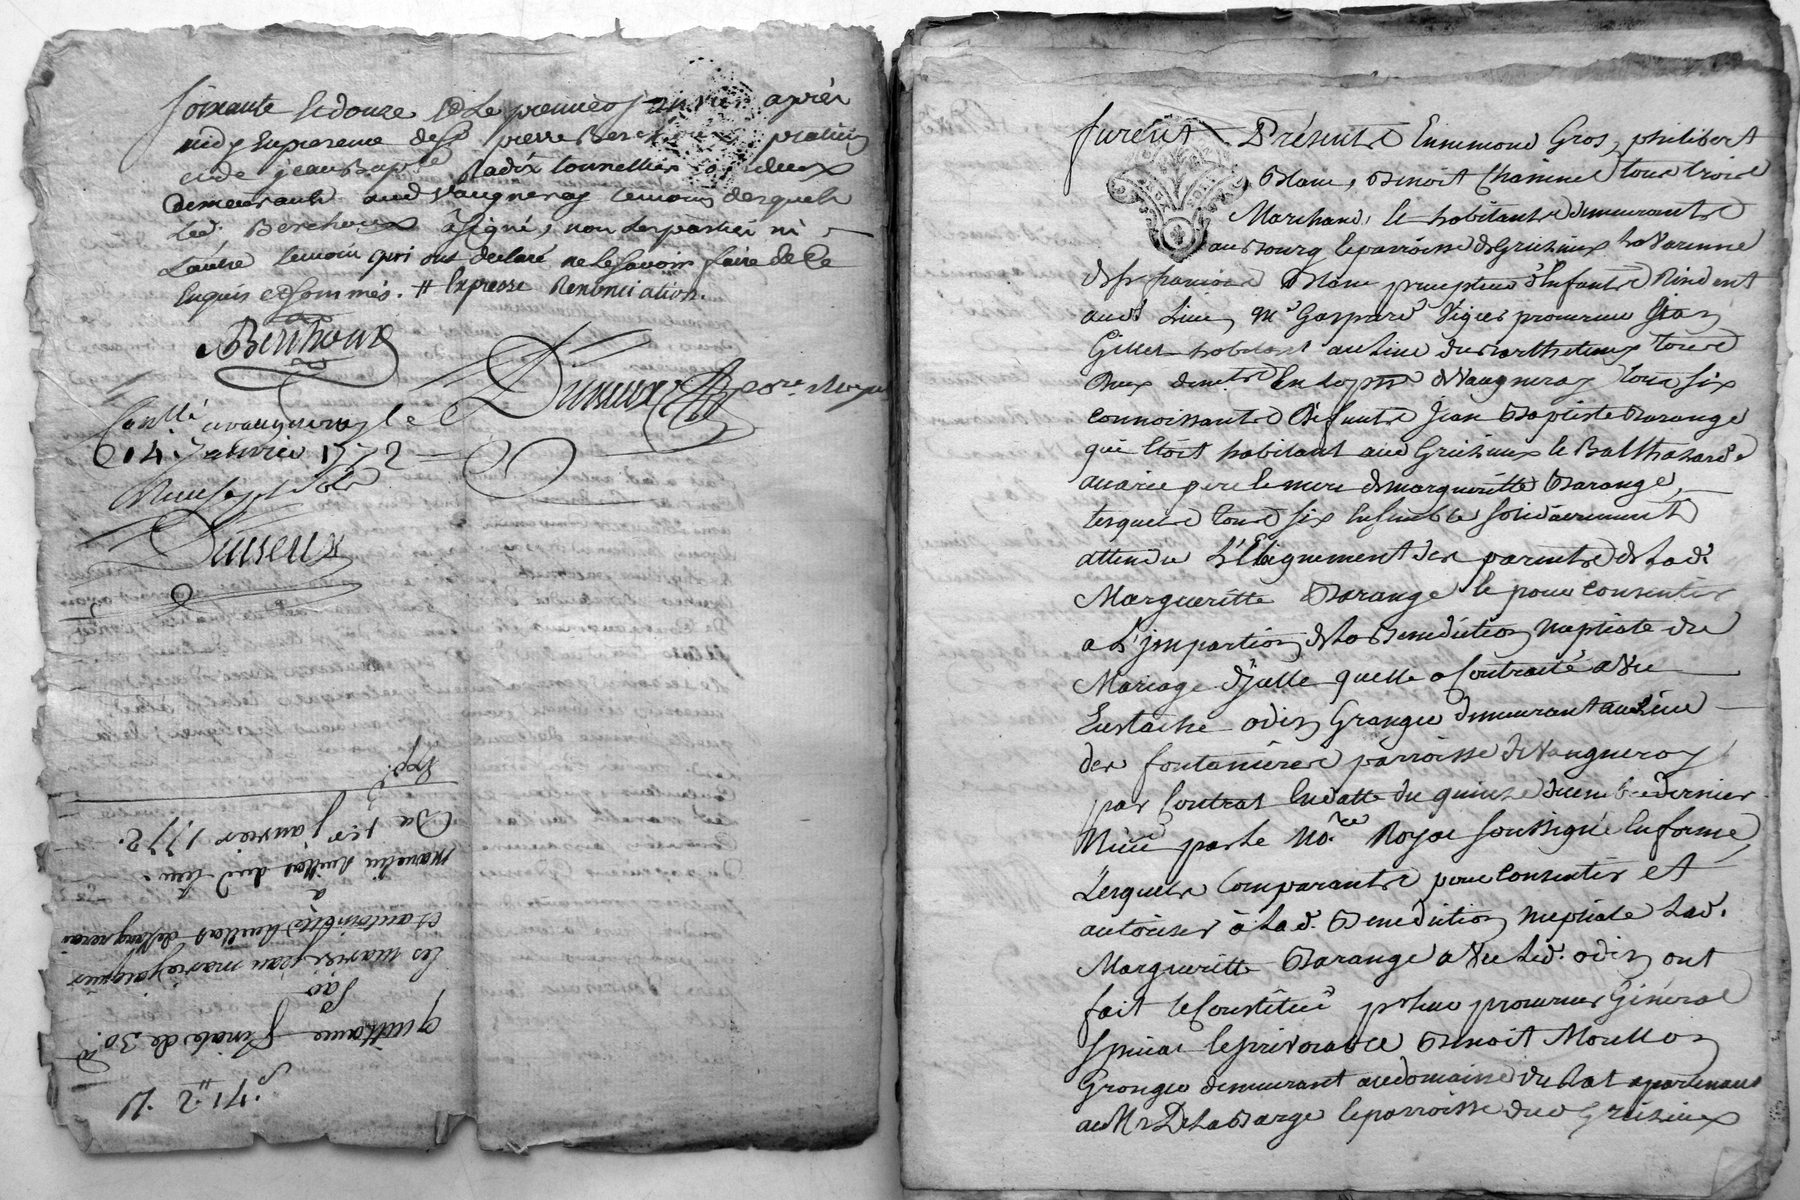 soixante et douze & le premier janvier après
midy en presence de sr pierre Berchoux praticien
et de jean Bapte Radix tonnellier tous deux
demeurants aud Vaugneray temoins desquels
led. Berchoux à signé, non les parties ni
l'autre temoin qui ont declaré ne le savoir faire de ce
enquis et sommés. # expresse Renonciation.
Berchoux
Duneux
Conllé à vaugneray le
14 Janvier 1772
Duneux
Expd.
Du 1er janvier 1772.
dud. lieu.
à
et antoinette de Vaugneray
les mariés jean
Par
quittance finale de 30
furent Présents Ennemond Gros, philibert
Blanc, Benoit Chainne tous trois
Marchands, & habitants demeurants
au Bourg & parroisse de Grézieux la Varenne
Sr françois Blanc precepteur d'Enfants Résident
aud. Lieu, Me Gaspard Vigier procureur
Gillet habitant au lieu du tous
deux en la psse de Vaugneray tous six
connoissants Défunts Jean Baptiste Barange
qui Etoit habitant aud Grézieux & Balthazarde
pere & mere de margueritte Barange,
lesquels tous six Ensemble solidairement
attendu L'Eloignement des parents de Lad.
Margueritte Barange & pour consentir
a L'jmpartion de la Benediction nuptiale du
Mariage d'jcelle quelle a Contracté avec
Eustache odin Granger demeurant au Lieu
des fontanières parroisse de Vaugneray
par Contrat En datte du quinze decembre dernier
Reçu par le Nore. Royal soussigné En forme
Lesquels Comparants pour Consentir et
autoriser à Lad. Benediction nuptiale Lad.
Margueritte Barange avec Led. odin ont
fait & Constitué pr leur procureur Général
special & jrrevocable Benoit Morellon
Granger demeurant au domaine du Rat apartenant
au Mr De La Barge & parroisse dud Grézieux